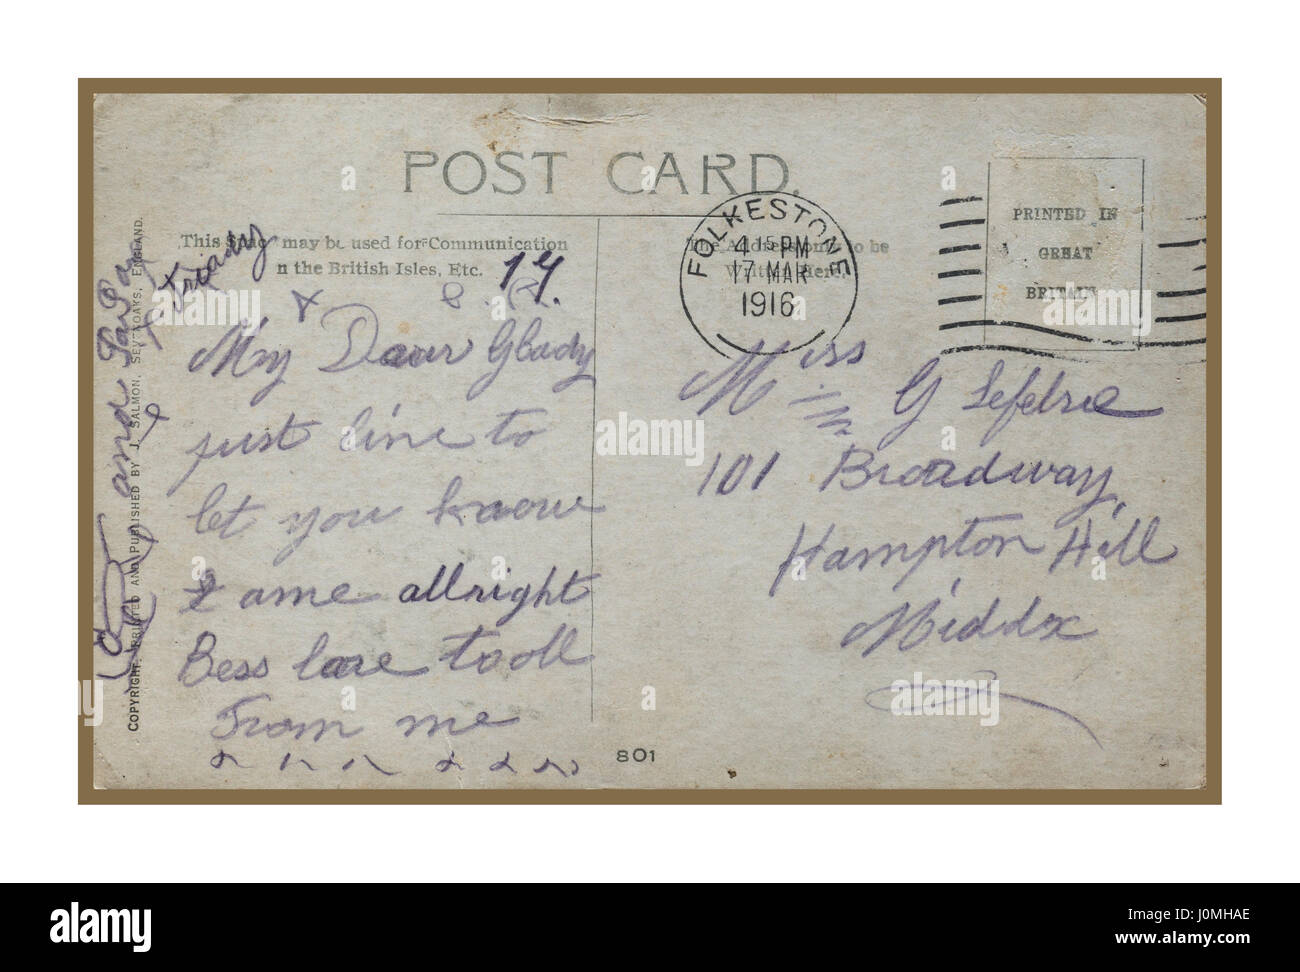 POST CARD.
This Space may be used for Communication
n the British Isles, Etc.
The Address only to be
Written Here.
FOLKESTONE
4 15 PM
17 MAR
1916
PRINTED IN
GREAT
BRITAIN
Friday
17.
My Dear Glady
just line to
let you know
I ame allright
Bess love to oll
From me
and
Miss G Lefebre
101 Broadway
Hampton Hill
Middx
COPYRIGHT. PRINTED AND PUBLISHED BY J. SALMON, SEVENOAKS, ENGLAND.
801
alamy
alamy
Image ID: J0MHAE
www.alamy.com